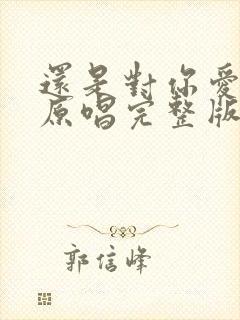 還是對你愛
原唱完整版
郭信峰